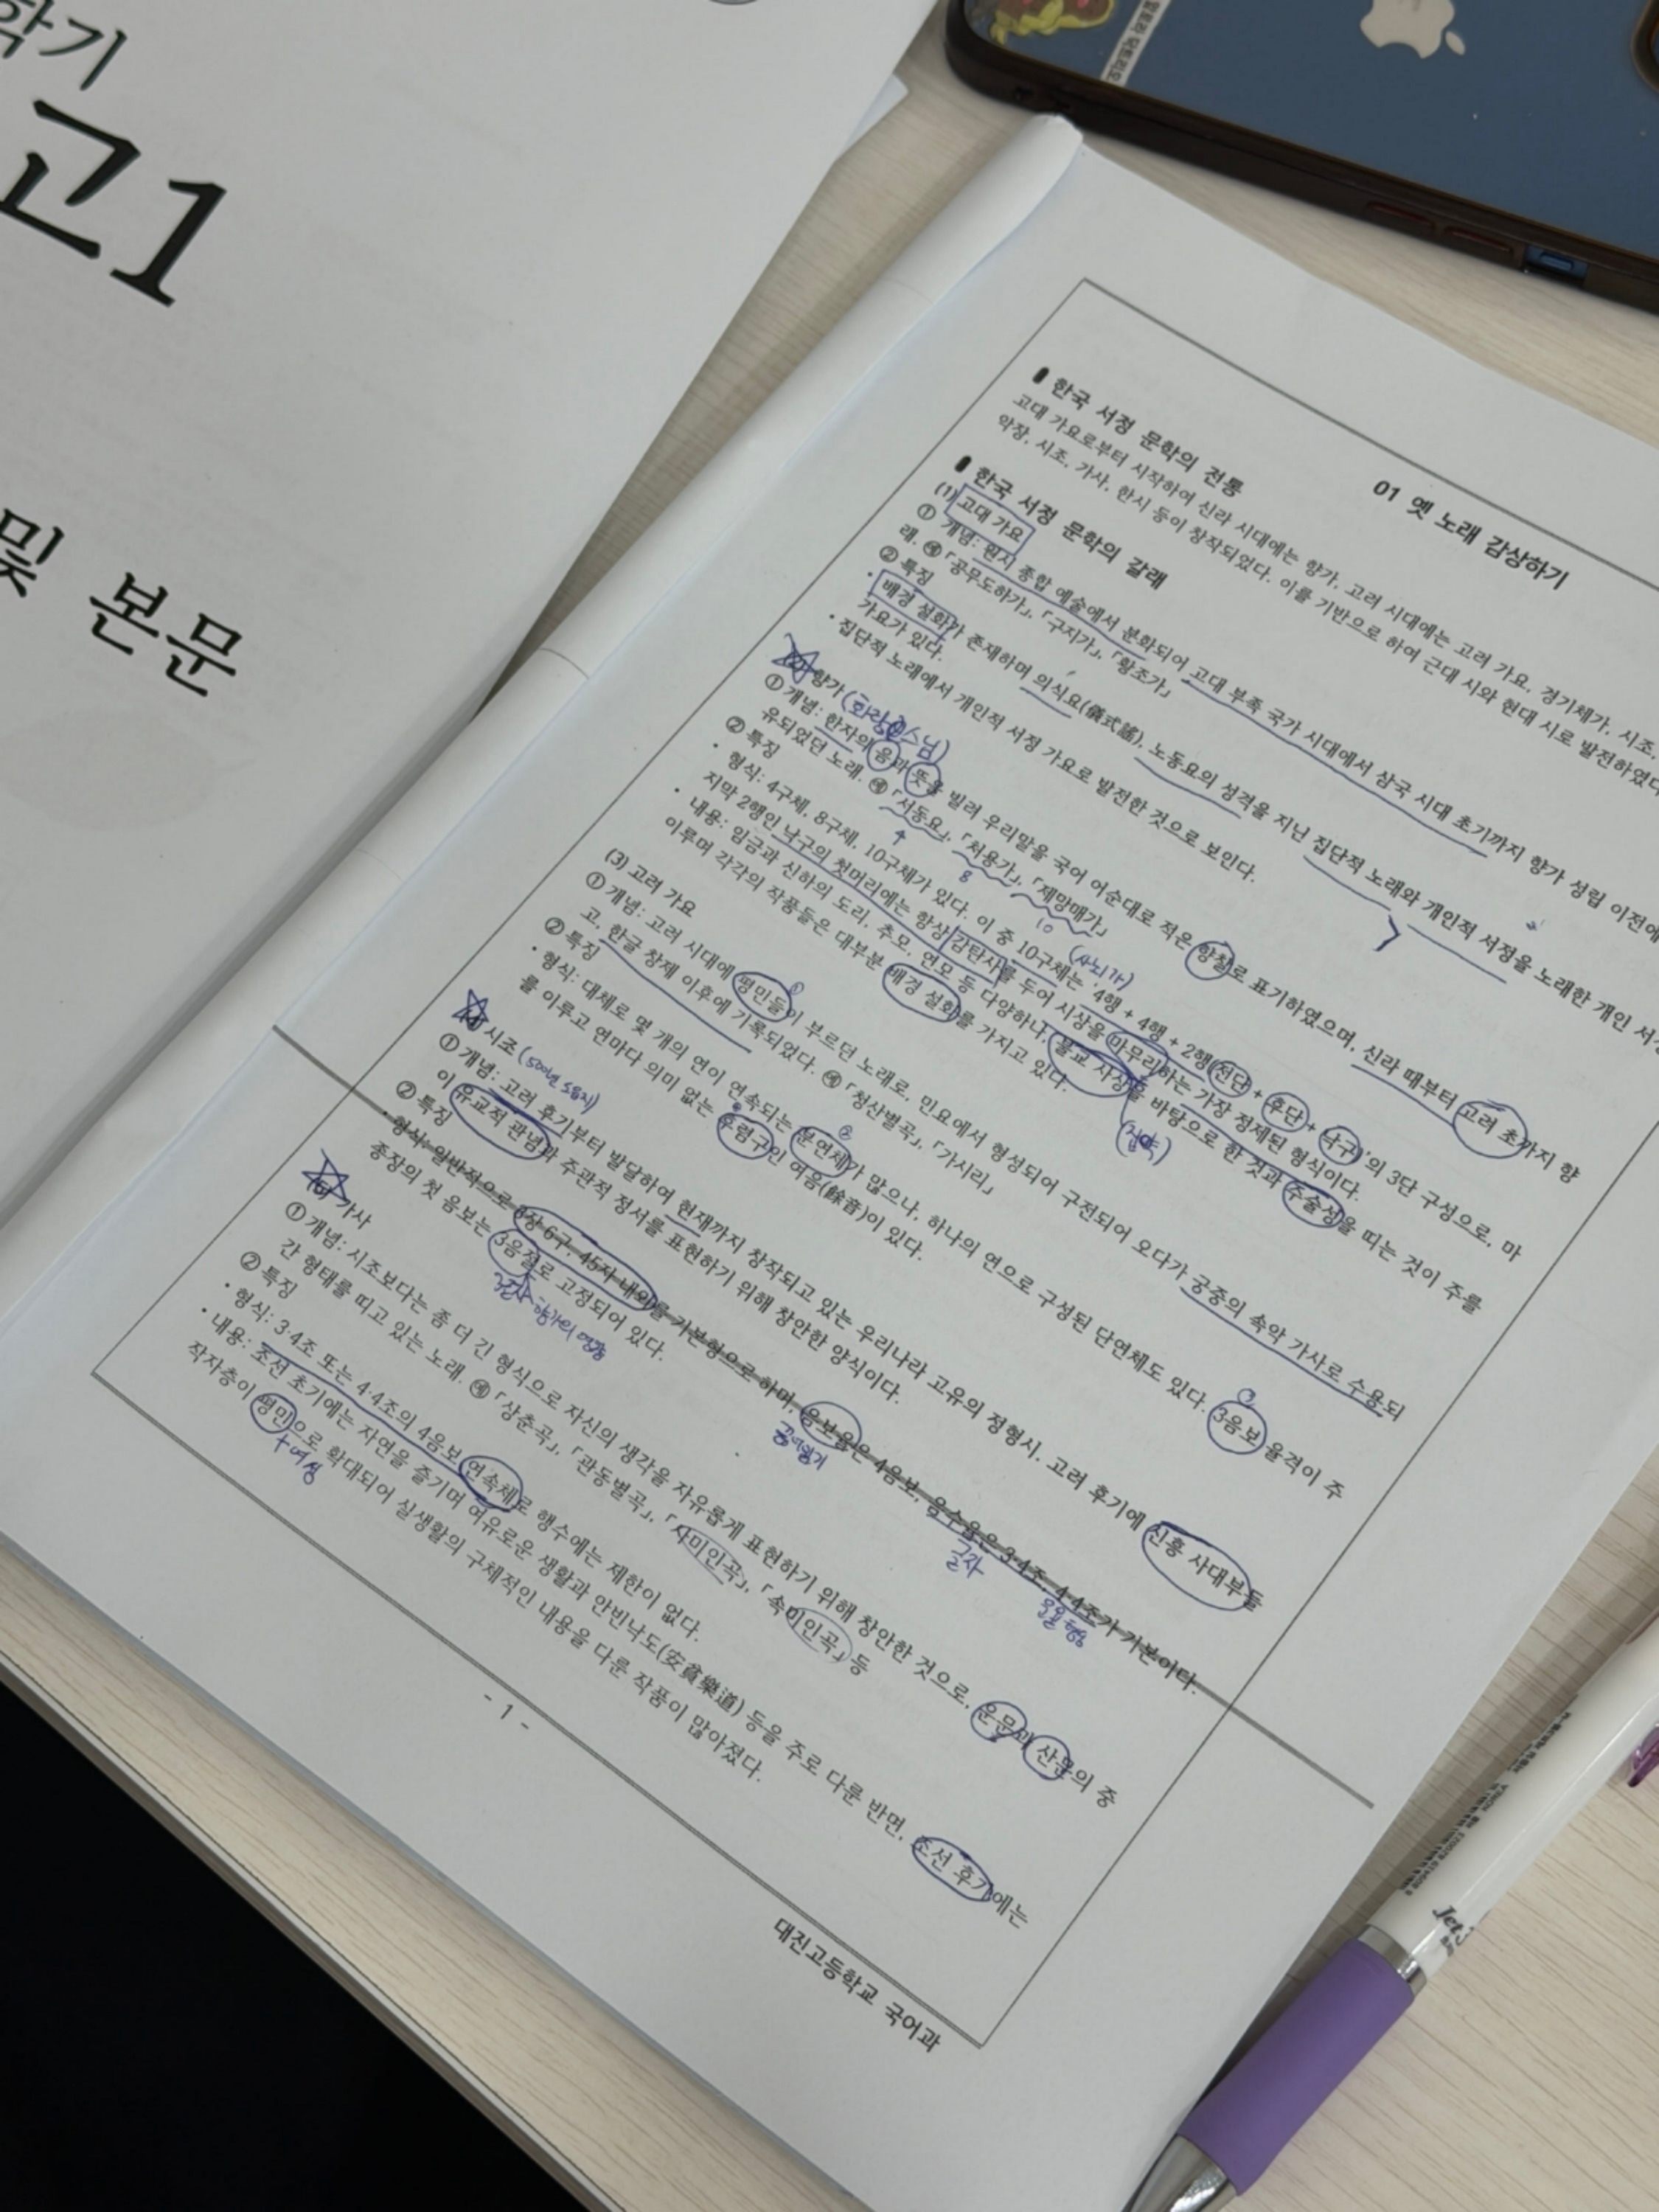 학기
고1
및 본문
01 옛 노래 감상하기
한국 서정 문학의 전통
고대 가요로부터 시작하여 신라 시대에는 향가, 고려 시대에는 고려 가요, 경기체가, 시조,
악장, 시조, 가사, 한시 등이 창작되었다. 이를 기반으로 하여 근대 시와 현대 시로 발전하였다
한국 서정 문학의 갈래
(1) 고대 가요
① 개념: 원시 종합 예술에서 분화되어 고대 부족 국가 시대에서 삼국 시대 초기까지 향가 성립 이전에
래. 예 「공무도하가」, 「구지가」, 「황조가」
② 특징
· 배경 설화가 존재하며 의식요(儀式謠), 노동요의 성격을 지닌 집단적 노래와 개인적 서정을 노래한 개인 서정
가요가 있다.
· 집단적 노래에서 개인적 서정 가요로 발전한 것으로 보인다.
(2) 향가 (화랑 스님)
① 개념: 한자의 음과 뜻을 빌려 우리말을 국어 어순대로 적은 향찰로 표기하였으며, 신라 때부터 고려 초까지 향
유되었던 노래. 예 「서동요」, 「처용가」, 「제망매가」
8 10
② 특징
(사뇌가)
· 형식: 4구체, 8구체, 10구체가 있다. 이 중 10구체는 '4행 + 4행 + 2행(전단 + 후단 + 낙구)'의 3단 구성으로, 마
지막 2행인 낙구의 첫머리에는 항상 감탄사를 두어 시상을 마무리하는 가장 정제된 형식이다.
(집약)
· 내용: 임금과 신하의 도리, 추모, 연모 등 다양하나, 불교 사상을 바탕으로 한 것과 주술성을 띠는 것이 주를
이루며 각각의 작품들은 대부분 배경 설화를 가지고 있다.
(3) 고려 가요
① 개념: 고려 시대에 평민들이 부르던 노래로, 민요에서 형성되어 구전되어 오다가 궁중의 속악 가사로 수용되
고, 한글 창제 이후에 기록되었다. 예 「청산별곡」, 「가시리」
② 특징
· 형식: 대체로 몇 개의 연이 연속되는 분연체가 많으나, 하나의 연으로 구성된 단연체도 있다. 3음보 율격이 주
를 이루고 연마다 의미 없는 후렴구인 여음(餘音)이 있다.
(4) 시조 (500년 58일지)
① 개념: 고려 후기부터 발달하여 현재까지 창작되고 있는 우리나라 고유의 정형시. 고려 후기에 신흥 사대부들
이 유교적 관념과 주관적 정서를 표현하기 위해 창안한 양식이다.
② 특징
· 형식: 일반적으로 3장 6구, 45자 내외를 기본형으로 하며, 음보율은 4음보, 음수율은 3·4조, 4·4조가 기본이다.
끊어읽기 글자
종장의 첫 음보는 3음절로 고정되어 있다.
향가의 영향
(5) 가사
① 개념: 시조보다는 좀 더 긴 형식으로 자신의 생각을 자유롭게 표현하기 위해 창안한 것으로, 운문과 산문의 중
간 형태를 띠고 있는 노래. 예 「상춘곡」, 「관동별곡」, 「사미인곡」, 「속미인곡」 등
② 특징
· 형식: 3·4조 또는 4·4조의 4음보 연속체로 행수에는 제한이 없다.
· 내용: 조선 초기에는 자연을 즐기며 여유로운 생활과 안빈낙도(安貧樂道) 등을 주로 다룬 반면, 조선 후기에는
작자층이 평민으로 확대되어 실생활의 구체적인 내용을 다룬 작품이 많아졌다.
+여성
- 1 -
대진고등학교 국어과